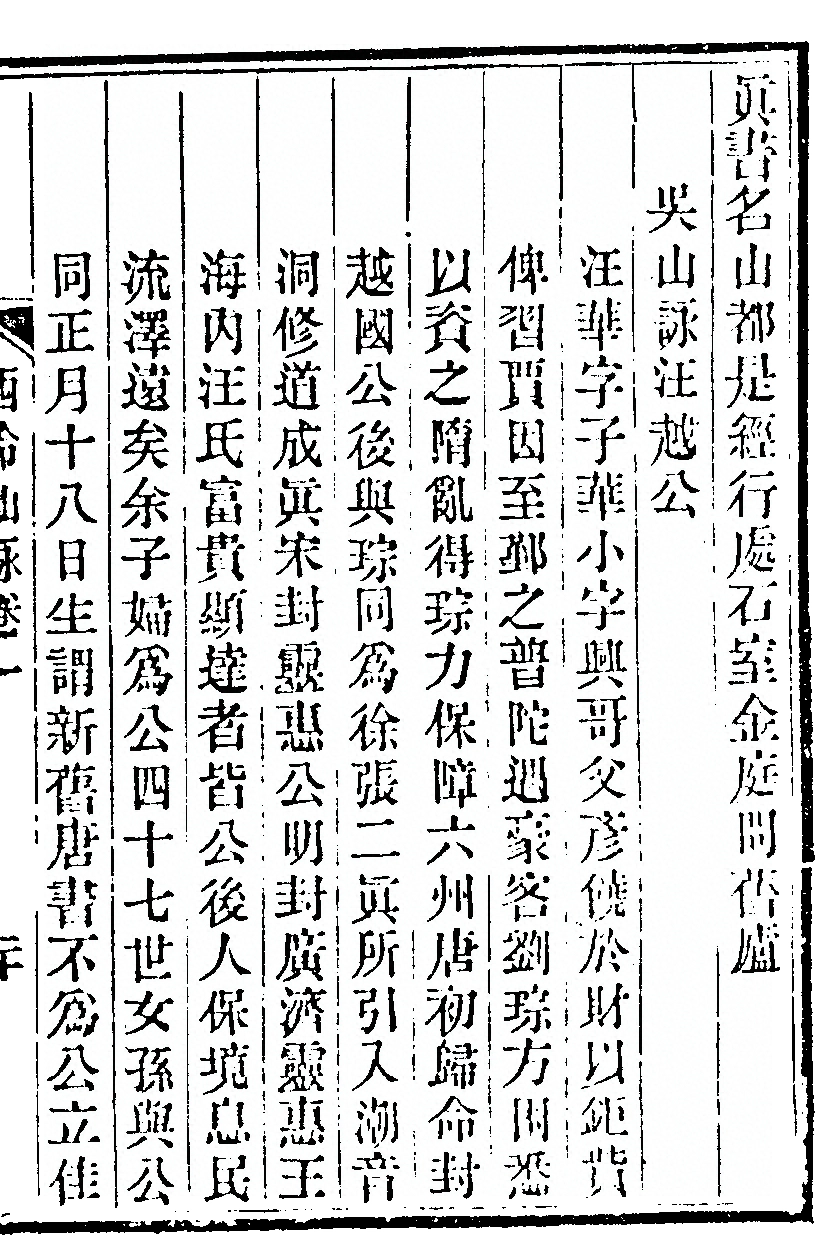 眞書名山都是經行處石室金庭問舊廬
吳山詠汪越公
汪華字子華小字興哥父彥饒於財以鉅貲
俾習賈因至鄞之普陀遇豪客劉琮方困悉
以資之隋亂得琮力保障六州唐初歸命封
越國公後與琮同爲徐張二眞所引入潮音
洞修道成眞宋封靈惠公明封廣濟靈惠王
海內汪氏富貴顯達者皆公後人保境息民
流澤遠矣余子婦爲公四十七世女孫與公
同正月十八日生謂新舊唐書不爲公立佳
西泠仙詠卷一